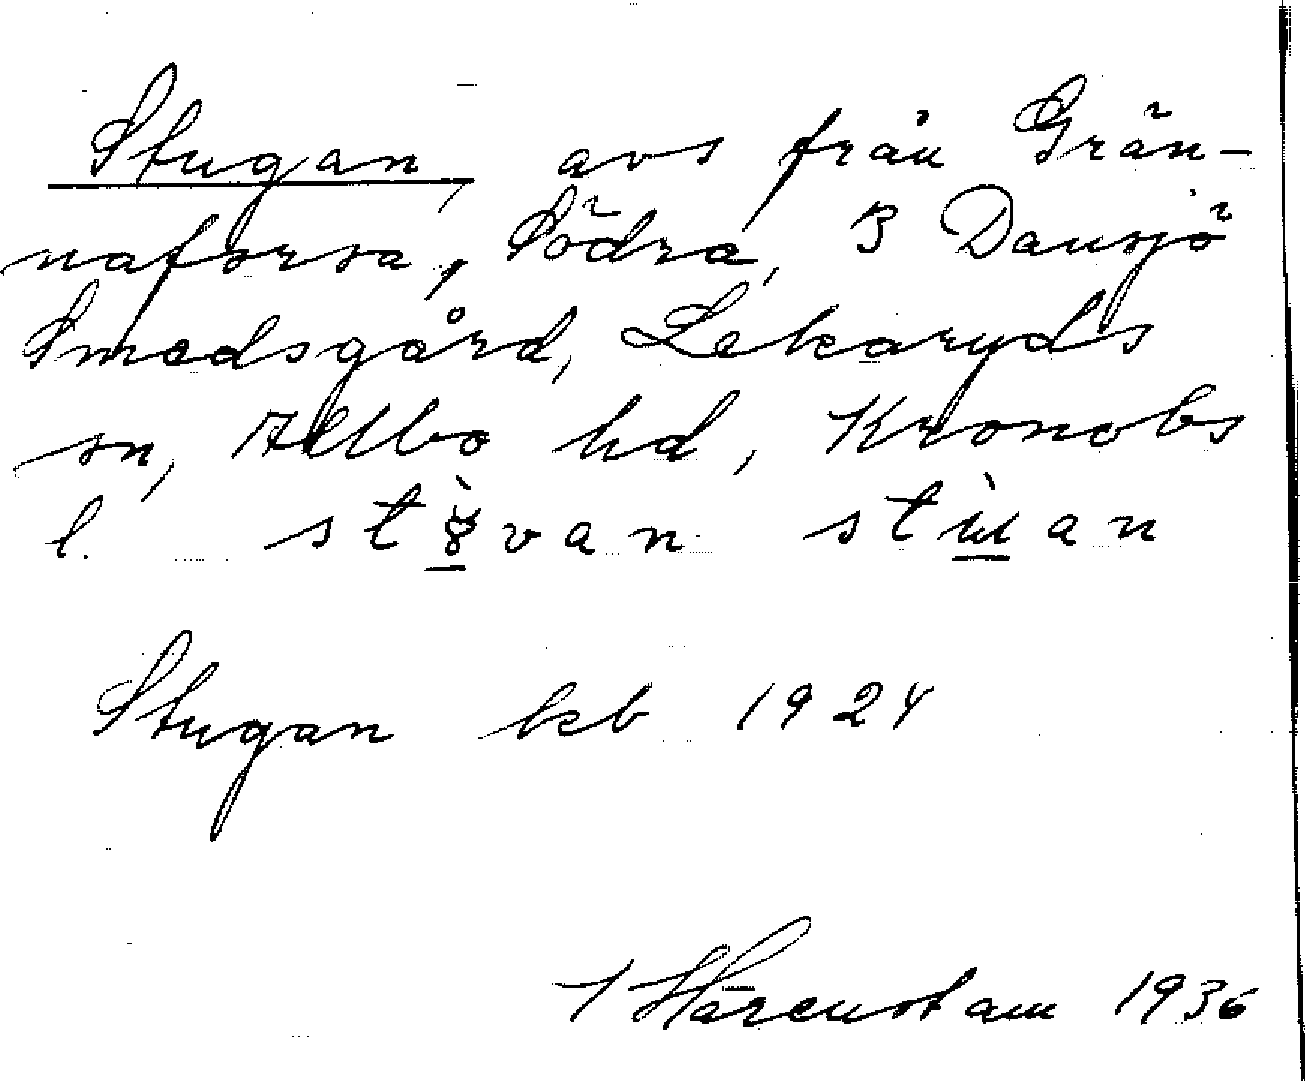 Stugan, avs från Grän-
naforsa, Södra, 3 Dansjö
Smedsgård, Lekaryds
sn, Allbo hd, Kronobs
l. van stùan
Stugan kb 1924
Härenstam 1936